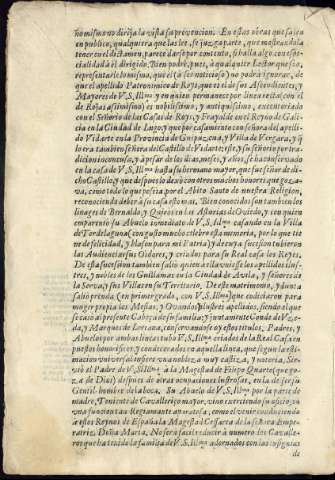 ño mismo no dirija la vista su prevencion. En estas obras que salen
en publico, qualquiera que las lee, se juzga parte, que mostrandola
tener en el dictamen, parece darse por contento, si halla algo con es-
pecialidad à èl dirigido. Bien podrè, pues, à qualquier Lector que sea,
representarle como, que èl (à ser noticioso) no podrà ignorar, de
que el apellido Patronimico de Reyes, que es el de sus Ascendientes, y
Mayores de V.S. Ill.ma y en quien permanece por linea recta (con el
de Rojas assimismo) es nobilissimo, y antiquissimo, executoriado
con el Señorio de las Casas de Reys, y Frayalde en el Reyno de Gali-
cia en la Ciudad de Lugo, y que por casamiento con señora del apelli-
do Vidarte en la Provincia de Guipuzcoa, y Villa de Vergara, y q
lo era tambien señora del Castillo de Vidarte; este, y su señorio por tra-
dicion inconcusa, y à pesar de los dias, meses, y años, se ha conservado
en la casa de V.S. Ill.ma hasta su hermano mayor, que fue señor de di-
cho Castillo, y que despues lo dexò con otros muchos honores que goza-
va, como todo lo que posseìa por el Abito Santo de nuestra Religion,
reconociendo deber à su casa estos mas. Bien conocidos son tambien los
linages de Bernaldo, y Quiros en las Asturias de Oviedo, y con quien
emparentò su Abuelo inmediato de V.S. Ill.ma casando en la Villa
de Tordelaguna (con gusto mucho celebro esta memoria, por lo que tie-
ne de felicidad, y blason para mi Patria) y de cuya succession tubieron
las Audiencias sus Oidores, y criados para su Real casa los Reyes.
De esta succession tambien saliò quien enlazò vuestros los apellidos ilus-
tres, y nobles de los Guillamas en la Ciudad de Avila, y señores de
la Serva, y sus Villas en su Territorio. De este matrimonio, y dama
saliò prenda (en primer grado, con V.S. Ill.ma) que solicitaron para
muger propia los Mesias, y Ovandos, ilustres apellidos, siendo el que
se casò al presente Cabeça de su familia; y juntamente Conde de Vze-
da, y Marquès de Loriana, conservandose oy estos titulos. Padres, y
Abuelos por ambas lineas tubo V.S. Ill.ma criados de la Real Casa en
puestos honorificos, y condecorados en aquella linea, que segun la esti-
macion universal se sirve una nobleza muy castiza, y notoria. Ser-
viò el Padre de V.S. Ill.ma à la Magestad de Felipe Quarto (que go-
za de Dios) despues de otras ocupaciones lustrosas, en la de ser su
Gentil-hombre de la boca. Su Abuelo de V.S. Ill.ma por la parte de
madre, Teniente de Cavallerizo mayor, vino exerciendo su oficio, en
una funcion tan llegamante aparatosa, como el venir conduciendo
à estos Reynos de España la Magestad Cesarea de la señora Empe-
ratriz Doña Maria. No serà facil reducir à numero los Cavalle-
ros que ha tenido la familia de V.S. Ill.ma adornados con las insignias
de